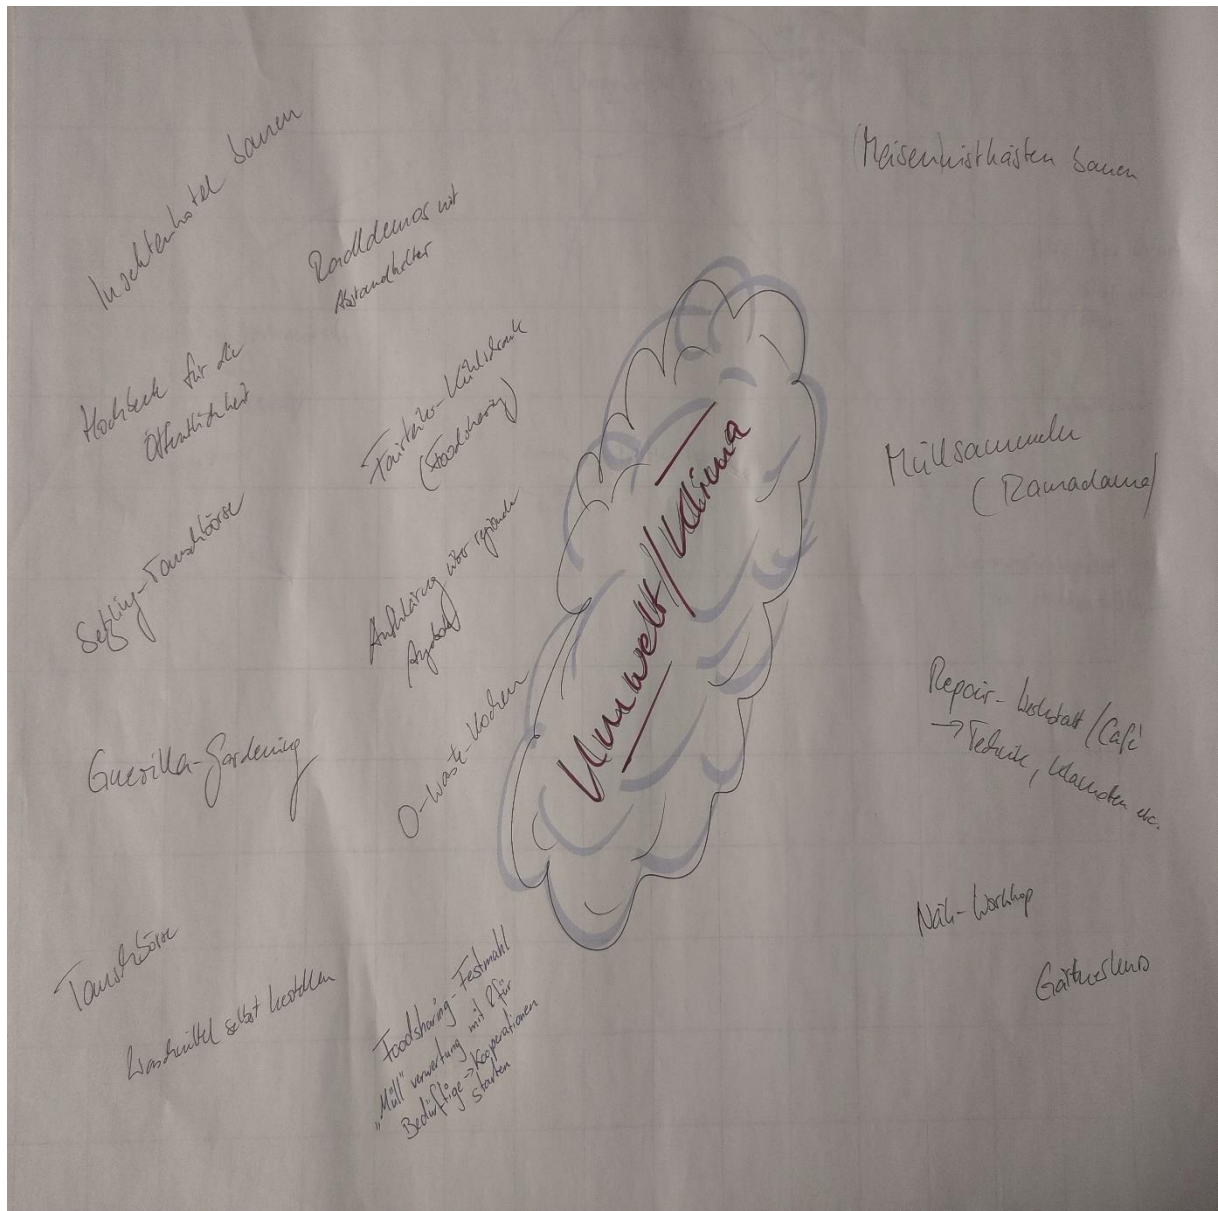 Insektenhotel bauen
Radldemos mit
Abstandhalter
Hochbeete für die
Öffentlichkeit
Fairteiler-Kühlschrank
(Foodsharing)
Setzling-Tauschbörse
Aufklärung über regionale
Angebote
Guerilla-Gardening
0-Waste-Kochen
Tauschbörse
Waschmittel selbst herstellen
Foodsharing-Festmahl
"Müll"verwertung mit & für
Bedürftige → Kooperationen
starten
Umwelt//Klima
Meisennistkästen bauen
Müllsammeln
(Ramadama)
Repair-Werkstatt/Café
→ Technik, Klamotten etc.
Näh-Workshop
Gärtnerkurs